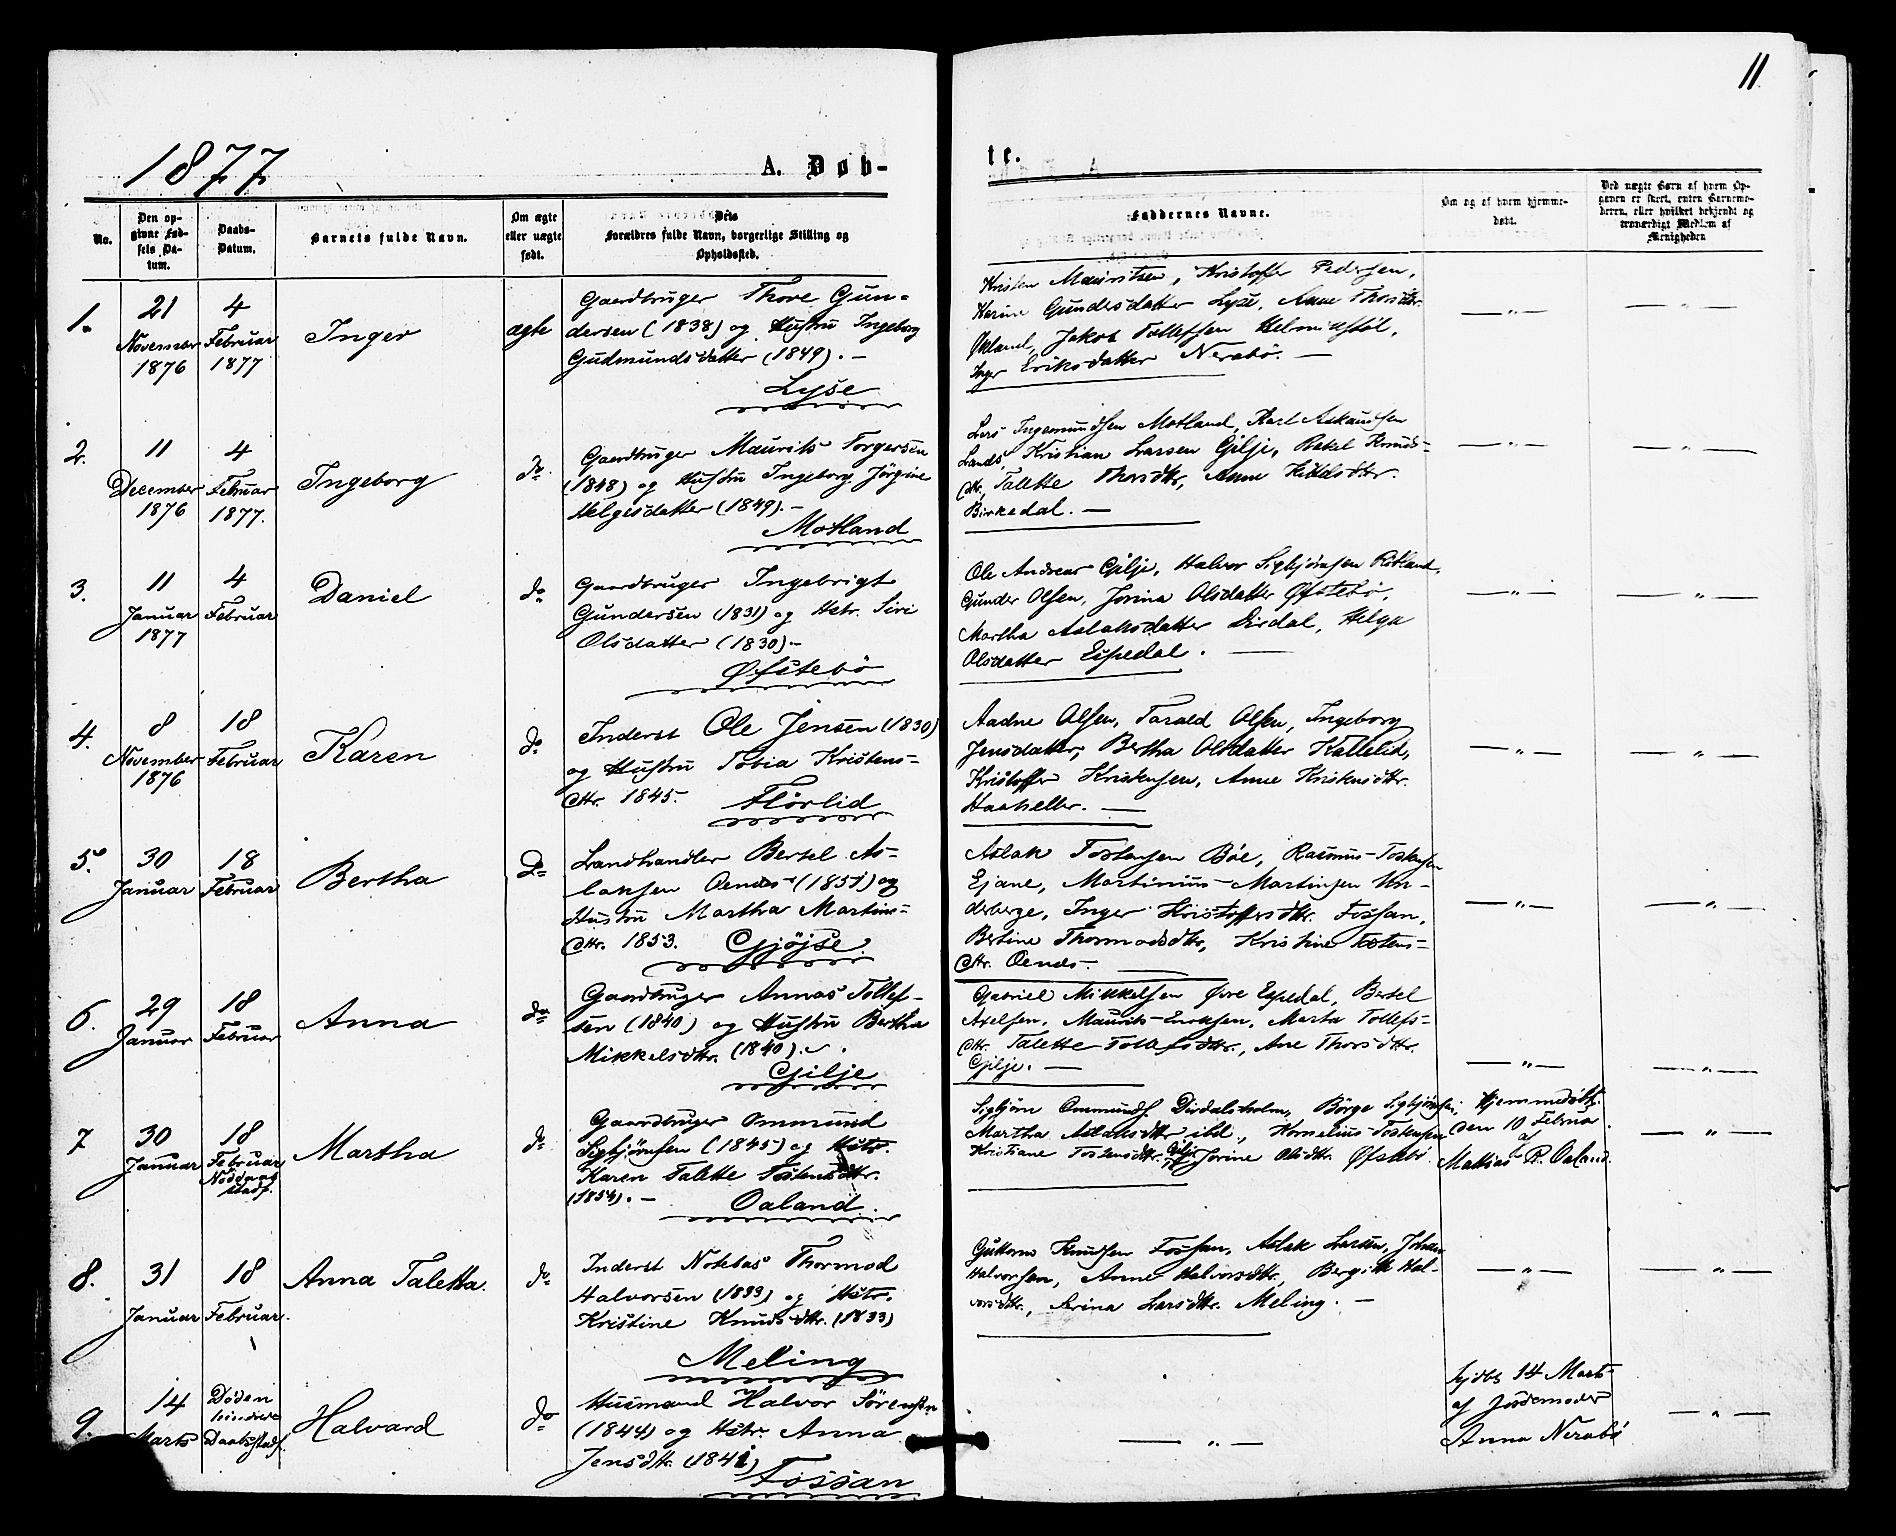 11
1877
A. Døb-
te.
No.
Den op-
givne Fød-
sels Da-
tum.
Daabs-
Datum.
Barnets fulde Navn.
Om ægte
eller uægte
født.
Dets
Forældres fulde Navn, borgerlige Stilling og
Opholdssted.
Faddernes Navne.
Om og af hvem hjemme-
døbt.
Ved uægte Børn af hvem Op-
gaven er skeet, enten Barnemo-
deren, eller hvilket bekjendt og
troværdigt Medlem af
Menigheden
1.
21
November
1876
4
Februar
1877
Inger
ægte
Gaardbruger Thore Gun-
dersen (1838) og Hustru Ingeborg
Gudmundsdatter (1849). —
Lyse
Kristen Mauritsen, Kristoffer Pedersen,
Herine Gundersdatter Lyse, Anne Thorsdtr
Jakob Tollefsen Helmikstøl,
Inger Eriksdatter Nerabö. —
— " —
— " —
2.
11
December
1876
4
Februar
1877.
Ingeborg
do
Gaardbruger Maurits Torgersen
(1848) og Hustru Ingeborg Jörgine
Helgesdatter (1849). —
Motland
Lars Ingemundsen Motland, Karl Askaudsen
Lands, Kristian Larsen Gilje, Rakel Knuds-
dtr, Talette Thorsdtr, Anne
Birkedal. —
— " —
— " —
3.
11
Januar
1877
4
Februar
Daniel
do
Gaardbruger Ingebrigt
Gundersen (1831) og Hstr. Siri
Olsdatter (1830). —
Øfstebö
Ole Andreas Gilje, Halvor Sigbjörnsen
Gunder Olsen, Jorina Olsdatter Øfstebö,
Martha Aslaksdatter Dirdal, Helga
Olsdatter Espedal. —
— " —
— " —
4.
8
November
1876
18
Februar
Karen
do
Inderst Ole Jensen (1830)
og Hustru Tobia Kristens-
dtr. 1845.
Flörlid
Aadne Olsen, Tarald Olsen, Ingeborg
Jensdatter, Bertha Olsdatter Kallelid,
Kristoffer Kristensen, Anne Kristensdtr.
Haaheller. —
— " —
— " —
5.
30
Januar
18
Februar
Bertha
Do
Landhandler Bertel As-
laksen Oends (1851) og
Hustru Martha Martins-
dtr. 1853.
Gjöjse
Aslak Tostensen Böe, Rasmus Tostensen
Ejane, Martinius Martinsen Un-
derberge, Inger Kristoffersdtr. Fossan,
Bertine Thormodsdtr, Kristine Tostens-
dtr. Oends. —
— " —
— " —
6.
29
Januar
18
Februar
Anna
do
Gaardbruger Annas Tollef-
sen (1840) og Hustru Bertha
Mikkelsdtr. (1840).
Gilje
Gabriel Mikkelsen Øvre Espedal, Bertel
Axelsen, Maurits Eriksen, Marta Tollefs-
dtr. Talette Tollefsdtr., Ane Thorsdtr.
Gilje. —
— " —
— " —
7
30
Januar
18
Februar
Nöddaab
stadf.
Martha
do
Gaardbruger Ommund
Sigbjörnsen (1845) og Hstr.
Karen Talette Tostensdtr.
(1854). —
Oaland.
Sigbjörn Ommunds. Dirdalsholm, Börge Sigbjörnsen,
Martha Aslaksdtr ibd., Kornelius Tostensen
Kristiane Tostensdtr. Gilje Jorine Olsdtr. Øfstebö
Hjemmedöbt
den 10 Februar.
af
Mathias R. Oaland.
— " —
8.
31
Januar
18
Februar.
Anna Taletta.
do
Inderst Notebas Thormod
Halvorsen (1833) og Hstr.
Kristine Knudsdtr. (1833)
Meling
Guttorm Knudsen Fossan, Aslak Larsen, Johan
Halvorsen, Anne Halvorsdtr., Bergitte Hal-
vorsdtr., Serina Larsdtr. Meling. —
— " —
— " —
9.
14
Marts
Døden
hindrede
Daabsstadf.
Halvard
do
Husmand Halvor Sörensen
(1844) og Hstr. Anna
Jensdtr. (1841)
Fossan
— " —
hjdbt 14 Marts
af Jordemoder
Anna Nerabö
— " —